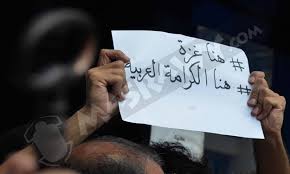 # هنا غزة
# هنا الكرامة العربية